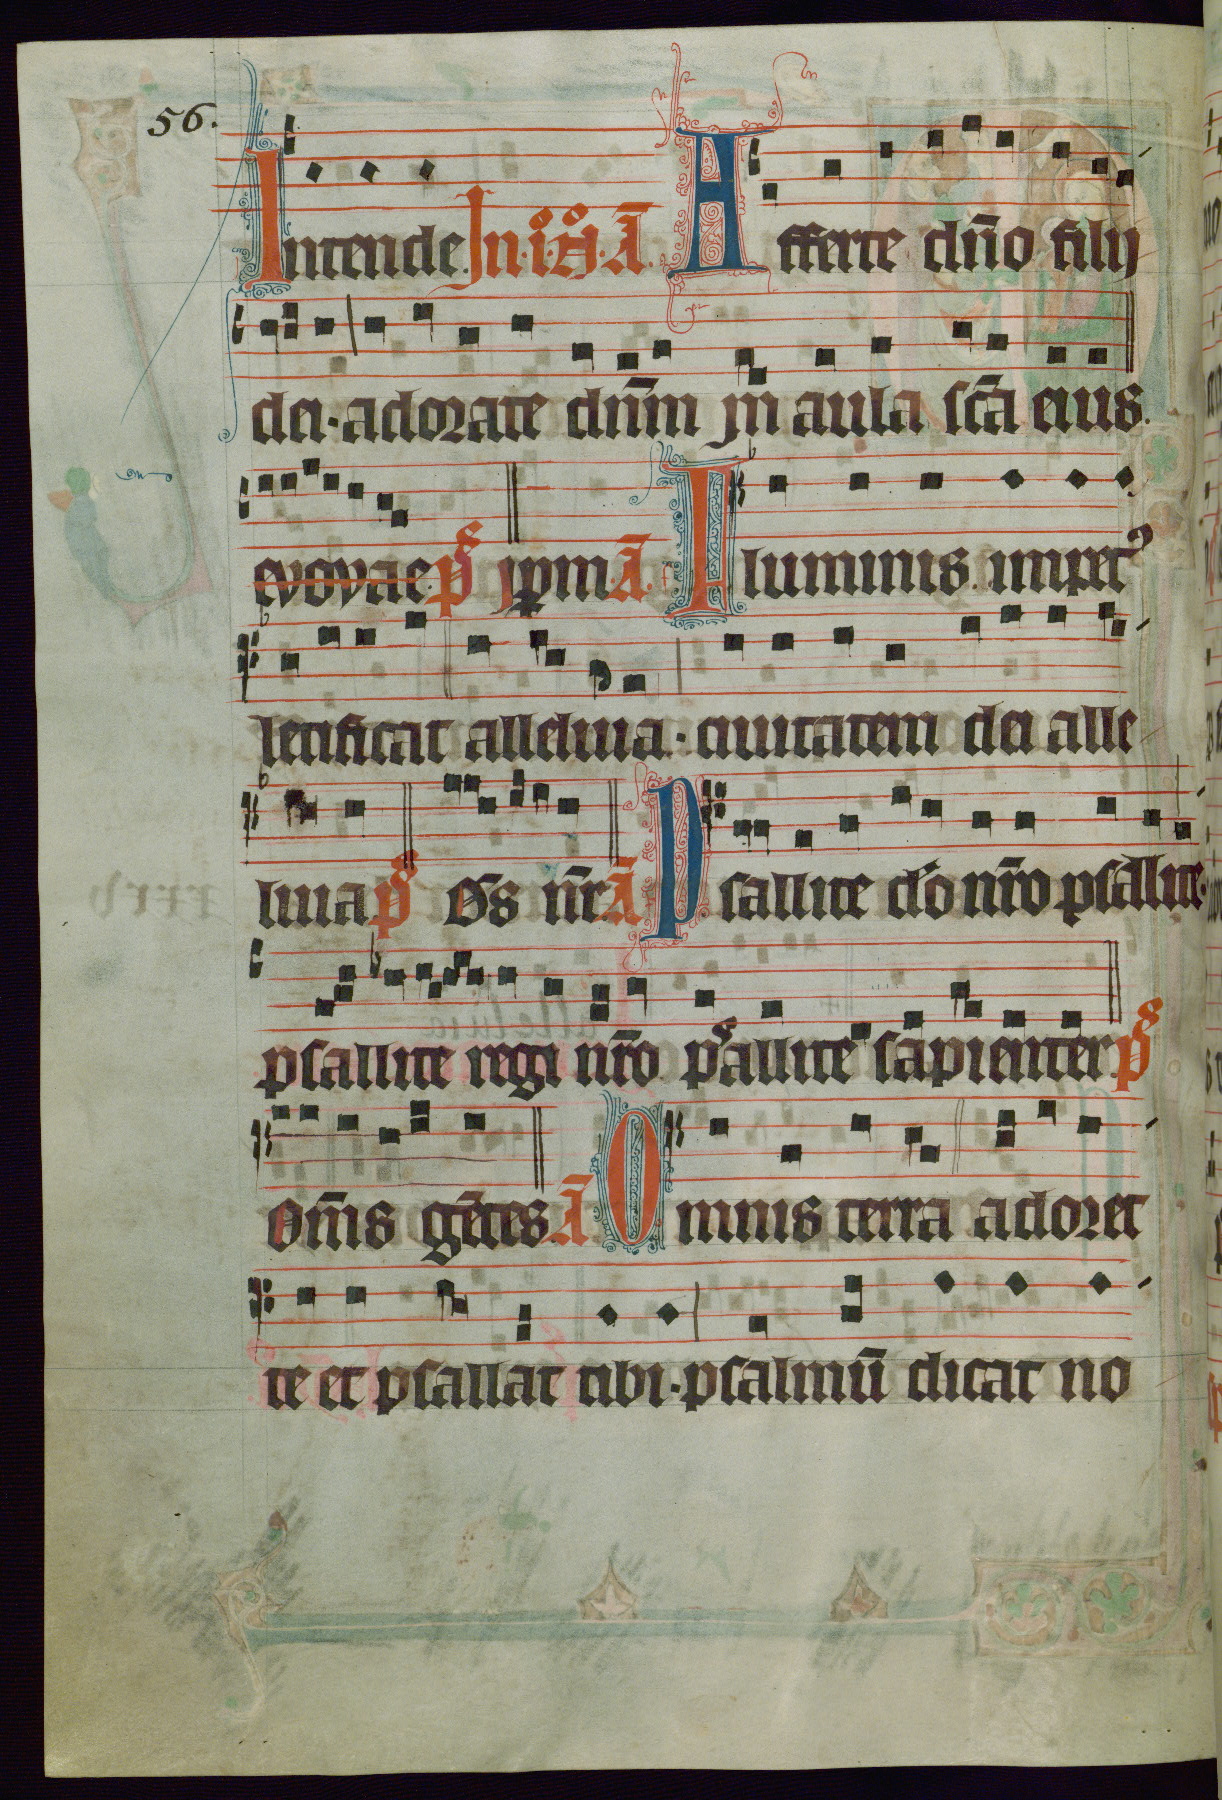 56.
Intende. In·i·N·A̅. Afferte dn̄o filij
dei· adorate dn̄m in aula sc̄a eius.
evovae. ps ip̄m. A̅. Fluminis impetꝰ
letificat alleluia· civitatem dei alle
luia ps Ds nr̄ A̅ Psallite do nr̄o psallite·
psallite regi nr̄o psallite sapienter. ps
Om̄s gētes. A̅ Omnis terra adoret
te et psallat tibi· psalmū dicat no